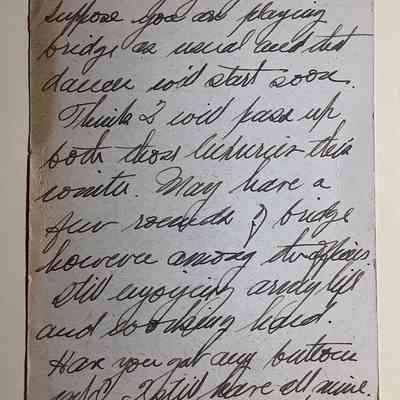 Suppose you are playing
bridge as usual and the
dances will start soon.
Think I will pass up
both those luxuries this
winter. May have a
few rounds of bridge
however among the officers.
Still enjoying army life
and working hard.
Have you got any button
I still have all mine.